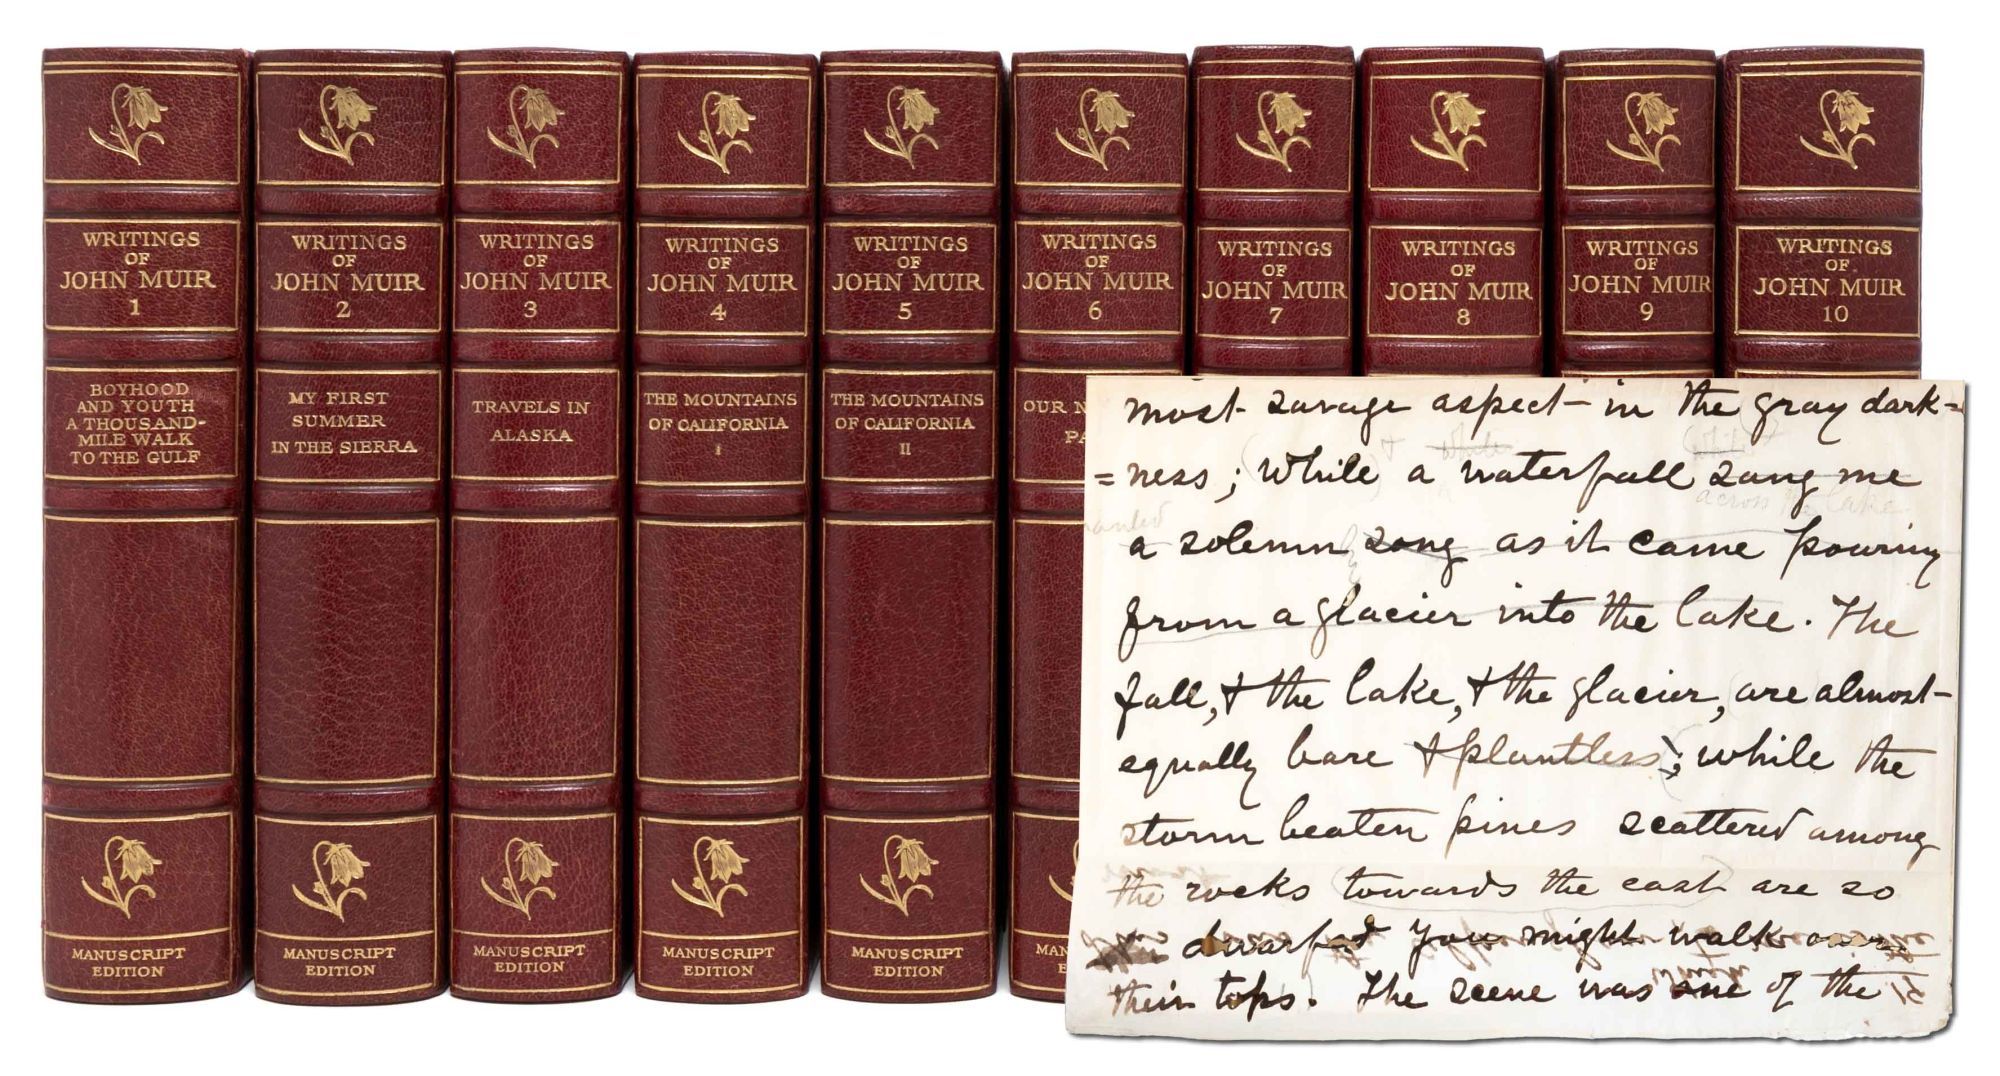 WRITINGS
OF
JOHN MUIR
1
BOYHOOD
AND YOUTH
A THOUSAND-
MILE WALK
TO THE GULF
MANUSCRIPT
EDITION
WRITINGS
OF
JOHN MUIR
2
MY FIRST
SUMMER
IN THE SIERRA
MANUSCRIPT
EDITION
WRITINGS
OF
JOHN MUIR
3
TRAVELS IN
ALASKA
MANUSCRIPT
EDITION
WRITINGS
OF
JOHN MUIR
4
THE MOUNTAINS
OF CALIFORNIA
I
MANUSCRIPT
EDITION
WRITINGS
OF
JOHN MUIR
5
THE MOUNTAINS
OF CALIFORNIA
II
MANUSCRIPT
EDITION
WRITINGS
OF
JOHN MUIR
6
OUR N
PA
MAN
E
WRITINGS
OF
JOHN MUIR
7
WRITINGS
OF
JOHN MUIR
8
WRITINGS
OF
JOHN MUIR
9
WRITINGS
OF
JOHN MUIR
10
most savage aspect in the gray dark=
=ness; while a waterfall sang me
across the lake
a solemn song as it came pouring
from a glacier into the lake. The
fall, & the lake, & the glacier, are almost
equally bare & plantless; while the
storm beaten pines scattered among
the rocks towards the east are so
dwarfed you might walk over
their tops. The scene was one of the